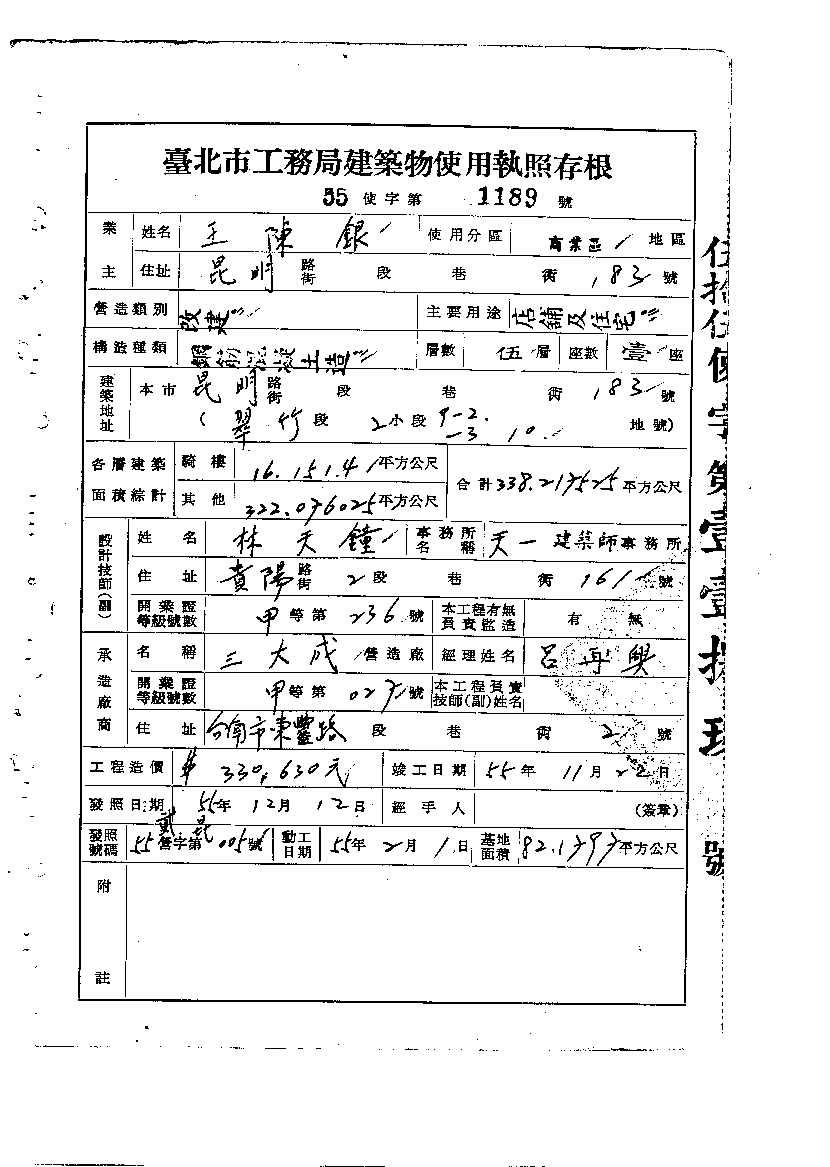 臺北市工務局建築物使用執照存根
55 使字第 1189 號
業主 姓名 王陳銀 使用分區 商業區 地區
住址 昆明 路街 段 巷 衖 183 號
營造類別 改建 主要用途 店舖及住宅
構造種類 鋼筋混凝土造 層數 伍層 座數 壹座
建築地址 本市 昆明 路街 段 巷 衖 183 號
( 翠竹段 2小段 9-2. -3 10. 地號)
各層建築面積綜計 騎樓 16.15141 平方公尺 合計 338.217525 平方公尺
其他 322.076025 平方公尺
設計技師(副) 姓名 林天鐘 事務所名稱 天一建築師事務所
住址 貴陽 路街 2段 巷 衖 161 號
開業證等級號數 甲等第 236 號 本工程有無負責監造 有 無
承造廠商 名稱 三大成 營造廠 經理姓名 呂再興
開業證等級號數 甲等第 027 號 本工程負責技師(副)姓名
住址 台南市東豐路 段 巷 衖 2 號
工程造價 $ 330,630元 竣工日期 55年 11月 22日
發照日期 55年 12月 12日 經手人 (簽章)
發照號碼 55 營字第 0056 號 動工日期 55年 2月 1日 基地面積 82.1797 平方公尺
附註
伍拾伍使字第壹壹捌玖號